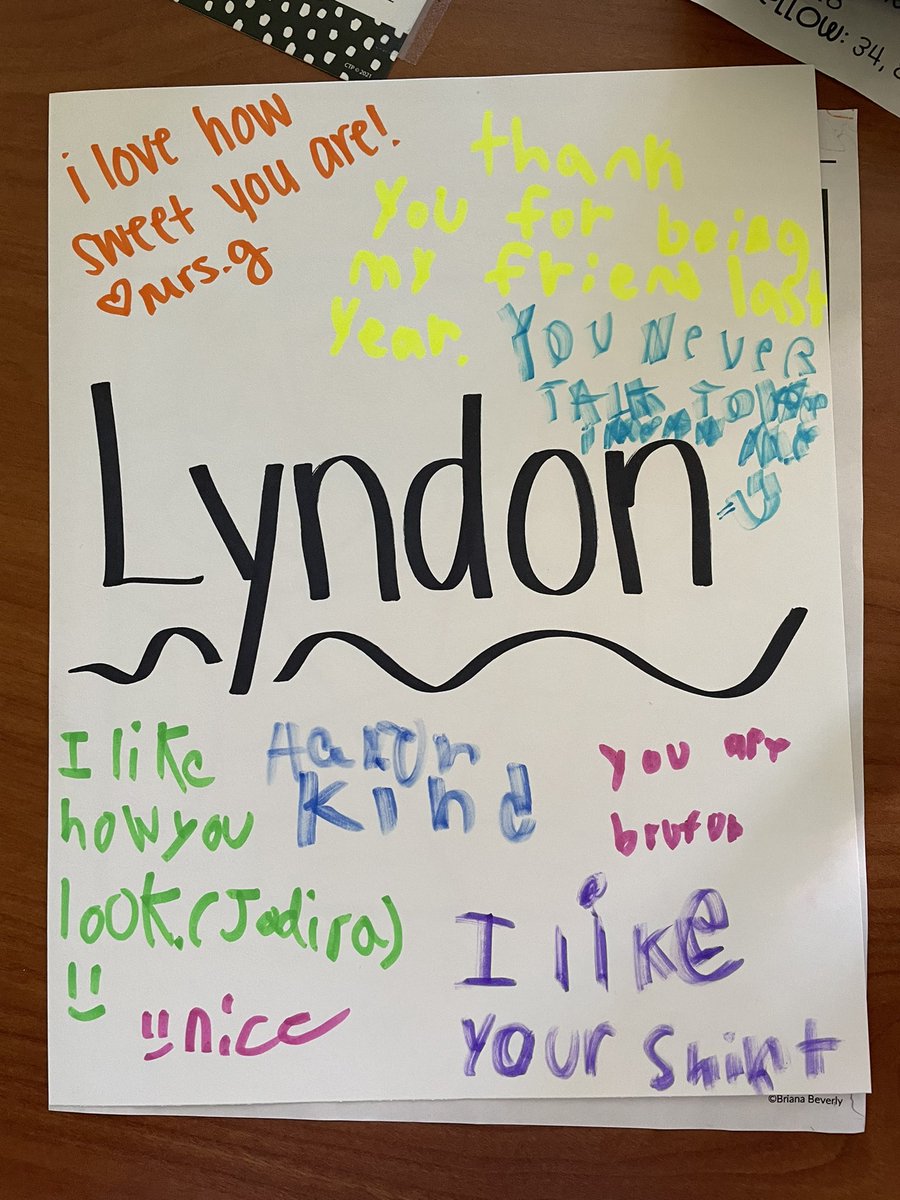 CTP © 2021
LLOW: 34,
i love how
sweet you are!
♡ mrs.g
thank
You for being
my friend last
Year.
You Never
TALK TO
me
Lyndon
I like
how you
look. (Jadira)
Kind
you are
nice
I like
Your Shirt
©Briana Beverly